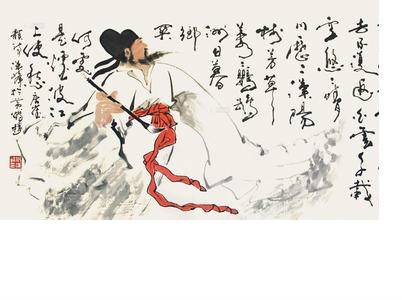 去不復返白雲千載
空悠悠晴
川歷歷漢陽
樹芳草
萋萋鸚鵡
洲日暮
鄉
關
何處
是煙波江
上使愁